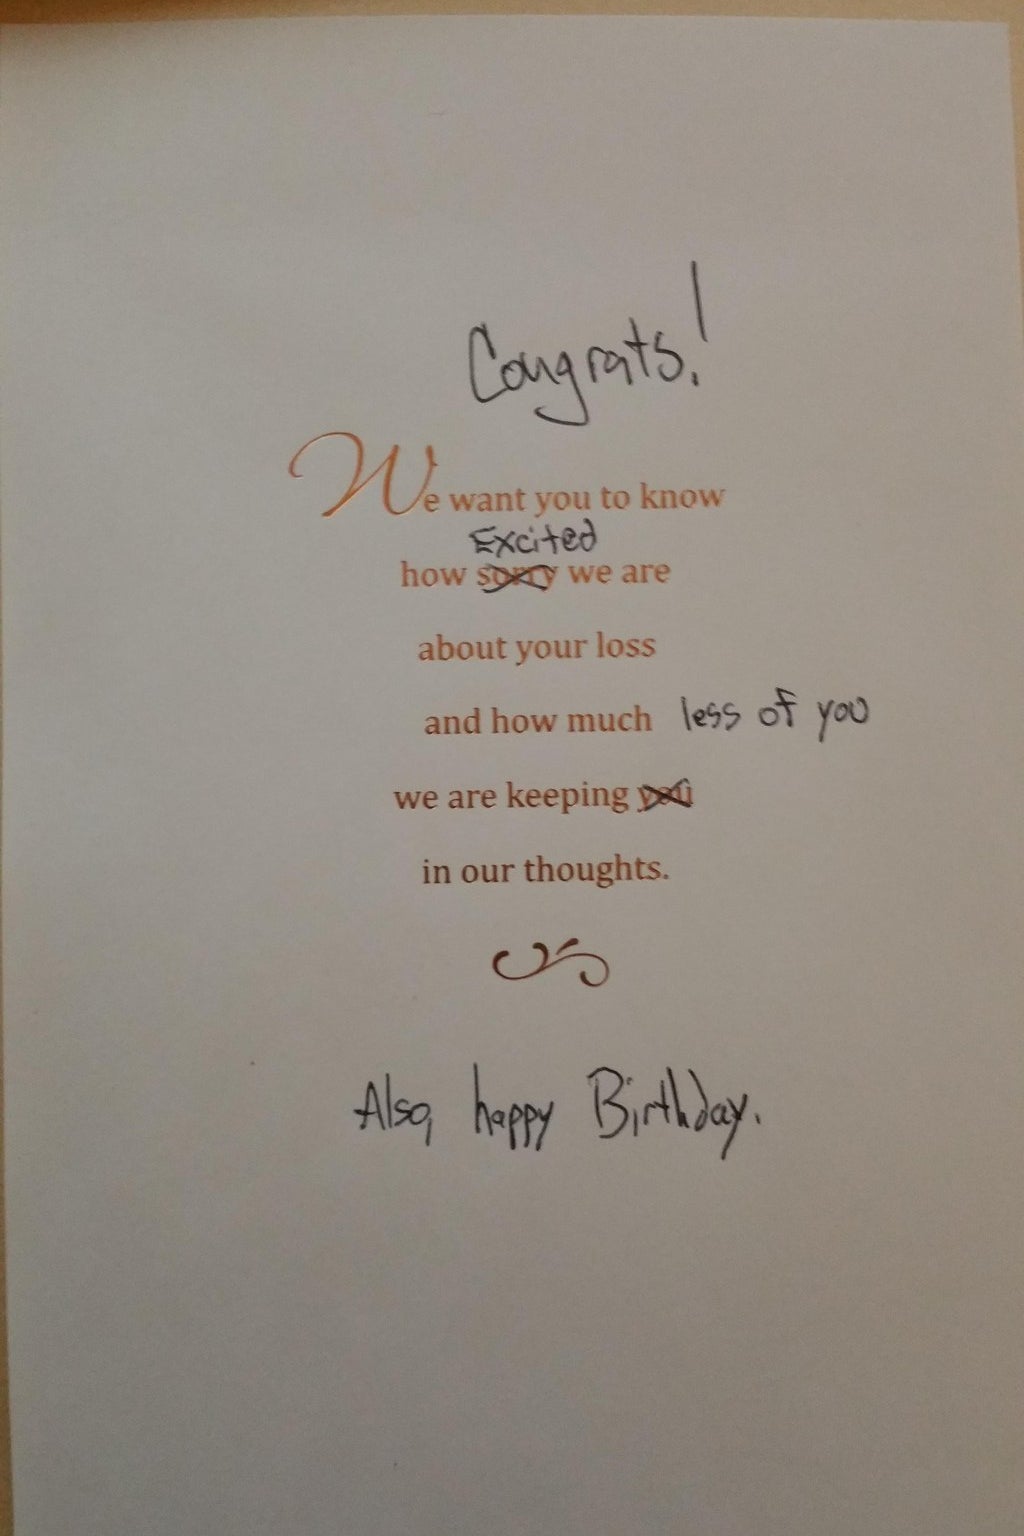 Congrats!
We want you to know
Excited
how sorry we are
about your loss
and how much less of you
we are keeping you
in our thoughts.
Also, happy Birthday.